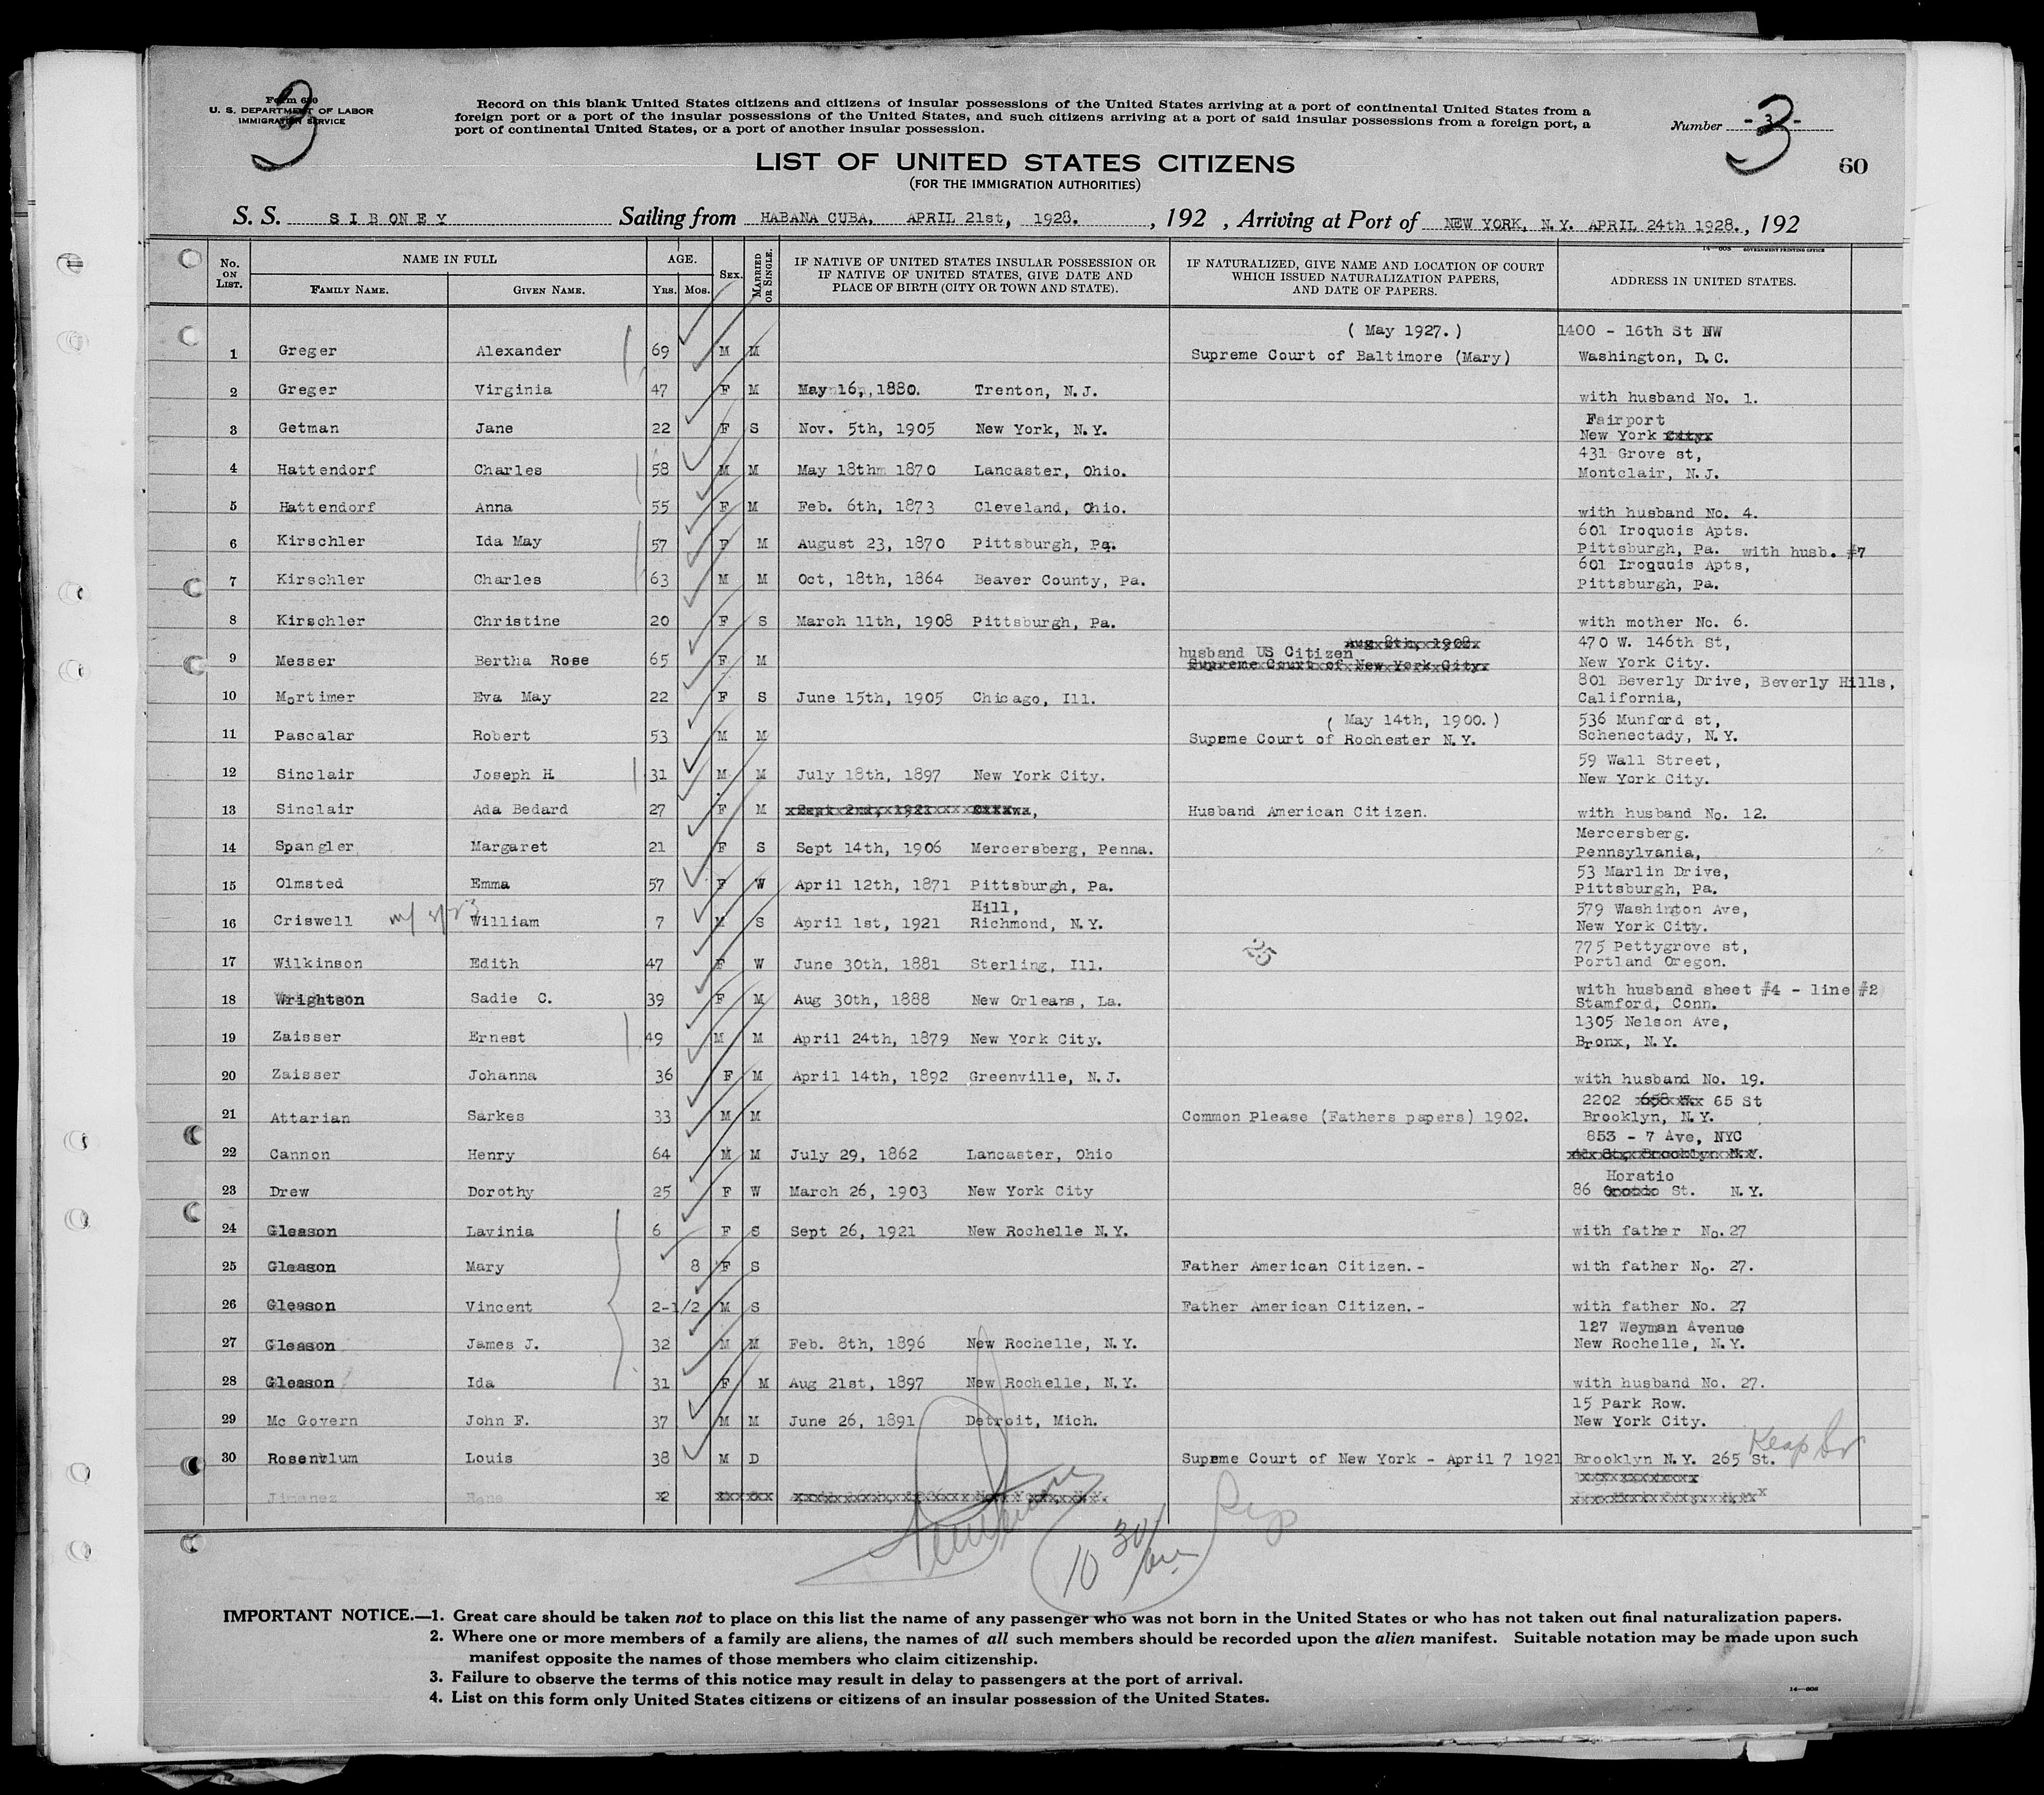 Form 630
U. S. DEPARTMENT OF LABOR
IMMIGRATION SERVICE
3
Record on this blank United States citizens and citizens of insular possessions of the United States arriving at a port of continental United States from a
foreign port or a port of the insular possessions of the United States, and such citizens arriving at a port of said insular possessions from a foreign port, a
port of continental United States, or a port of another insular possession.
Number - 3 -
3
60
LIST OF UNITED STATES CITIZENS
(FOR THE IMMIGRATION AUTHORITIES)
S. S. SIBONEY Sailing from HABANA CUBA, APRIL 21st, 1928. , 192 , Arriving at Port of NEW YORK, N.Y. APRIL 24th 1928. , 192
14—608 GOVERNMENT PRINTING OFFICE
No. ON LIST. NAME IN FULL FAMILY NAME. GIVEN NAME. AGE. YRS. MOS. SEX. MARRIED OR SINGLE. IF NATIVE OF UNITED STATES INSULAR POSSESSION OR IF NATIVE OF UNITED STATES, GIVE DATE AND PLACE OF BIRTH (CITY OR TOWN AND STATE). IF NATURALIZED, GIVE NAME AND LOCATION OF COURT WHICH ISSUED NATURALIZATION PAPERS, AND DATE OF PAPERS. ADDRESS IN UNITED STATES.
( May 1927. ) 1400 - 16th St NW
1 Greger Alexander 69 M M Supreme Court of Baltimore (Mary) Washington, D.C.
2 Greger Virginia 47 F M May 16, 1880. Trenton, N.J. with husband No. 1.
Fairport
3 Getman Jane 22 F S Nov. 5th, 1905 New York, N.Y. New York City
431 Grove st,
4 Hattendorf Charles 58 M M May 18thm 1870 Lancaster, Ohio. Montclair, N.J.
5 Hattendorf Anna 55 F M Feb. 6th, 1873 Cleveland, Ohio. with husband No. 4.
601 Iroquois Apts.
6 Kirschler Ida May 57 F M August 23, 1870 Pittsburgh, Pa. Pittsburgh, Pa. with husb. #7
601 Iroquois Apts,
7 Kirschler Charles 63 M M Oct, 18th, 1864 Beaver County, Pa. Pittsburgh, Pa.
8 Kirschler Christine 20 F S March 11th, 1908 Pittsburgh, Pa. with mother No. 6.
Aug 8th, 1908 470 W. 146th St,
husband US Citizen
9 Messer Bertha Rose 65 F M Supreme Court of New York City New York City.
801 Beverly Drive, Beverly Hills,
10 Mortimer Eva May 22 F S June 15th, 1905 Chicago, Ill. California,
( May 14th, 1900. ) 536 Munford st,
11 Pascalar Robert 53 M M Supreme Court of Rochester N.Y. Schenectady, N.Y.
59 Wall Street,
12 Sinclair Joseph H 31 M M July 18th, 1897 New York City. New York City.
13 Sinclair Ada Bedard 27 F M Husband American Citizen. with husband No. 12.
Mercersberg.
14 Spangler Margaret 21 F S Sept 14th, 1906 Mercersberg, Penna. Pennsylvania,
53 Marlin Drive,
15 Olmsted Emma 57 F W April 12th, 1871 Pittsburgh, Pa. Pittsburgh, Pa.
Hill, 579 Washington Ave,
16 Criswell William 7 M S April 1st, 1921 Richmond, N.Y. New York City.
25 775 Pettygrove st,
17 Wilkinson Edith 47 F W June 30th, 1881 Sterling, Ill. Portland Oregon.
with husband sheet #4 - line #2
18 Wrightson Sadie C. 39 F M Aug 30th, 1888 New Orleans, La. Stamford, Conn.
1305 Nelson Ave,
19 Zaisser Ernest 49 M M April 24th, 1879 New York City. Bronx, N.Y.
20 Zaisser Johanna 36 F M April 14th, 1892 Greenville, N.J. with husband No. 19.
2202 65 St
21 Attarian Sarkes 33 M M Common Please (Fathers papers) 1902. Brooklyn, N.Y.
853 - 7 Ave, NYC
22 Cannon Henry 64 M M July 29, 1862 Lancaster, Ohio
Horatio
23 Drew Dorothy 25 F W March 26, 1903 New York City 86 St. N.Y.
24 Gleason Lavinia 6 F S Sept 26, 1921 New Rochelle N.Y. with father No. 27
25 Gleason Mary 8 F S Father American Citizen.- with father No. 27.
26 Gleason Vincent 2-1/2 M S Father American Citizen.- with father No. 27
127 Weyman Avenue
27 Gleason James J. 32 M M Feb. 8th, 1896 New Rochelle, N.Y. New Rochelle, N.Y.
28 Gleason Ida 31 F M Aug 21st, 1897 New Rochelle, N.Y. with husband No. 27.
15 Park Row.
29 Mc Govern John F. 37 M M June 26, 1891 Detroit, Mich. New York City.
Keap
30 Rosenblum Louis 38 M D Supreme Court of New York - April 7 1921 Brooklyn N.Y. 265 St.
Jiminez Rene
10 30
IMPORTANT NOTICE.—1. Great care should be taken not to place on this list the name of any passenger who was not born in the United States or who has not taken out final naturalization papers.
2. Where one or more members of a family are aliens, the names of all such members should be recorded upon the alien manifest. Suitable notation may be made upon such
manifest opposite the names of those members who claim citizenship.
3. Failure to observe the terms of this notice may result in delay to passengers at the port of arrival.
4. List on this form only United States citizens or citizens of an insular possession of the United States.
14—608